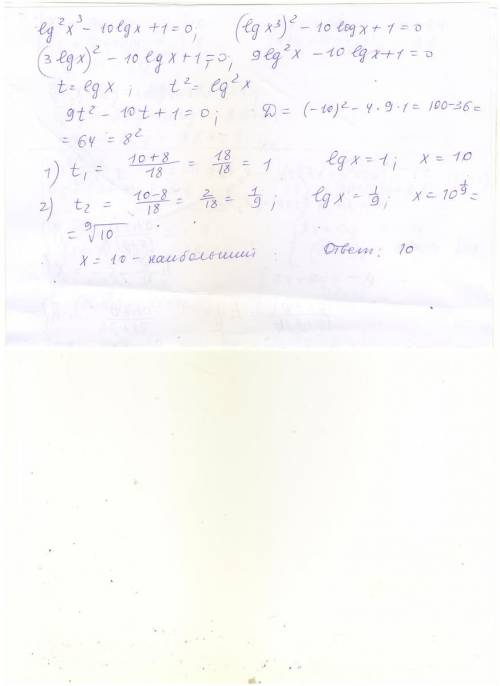 lg²x³ - 10lgx + 1 = 0,   (lgx³)² - 10logx + 1 = 0
(3lgx)² - 10lgx + 1 = 0,   9lg²x - 10lgx + 1 = 0
t = lgx ;   t² = lg²x
9t² - 10t + 1 = 0 ;   D = (-10)² - 4·9·1 = 100 - 36 =
= 64 = 8²
1) t₁ = (10+8)/18 = 18/18 = 1   lgx = 1 ;   x = 10
2) t₂ = (10-8)/18 = 2/18 = 1/9 ;   lgx = 1/9 ;   x = 10^(1/9) =
= ⁹√10
x = 10 - наибольший   Ответ: 10